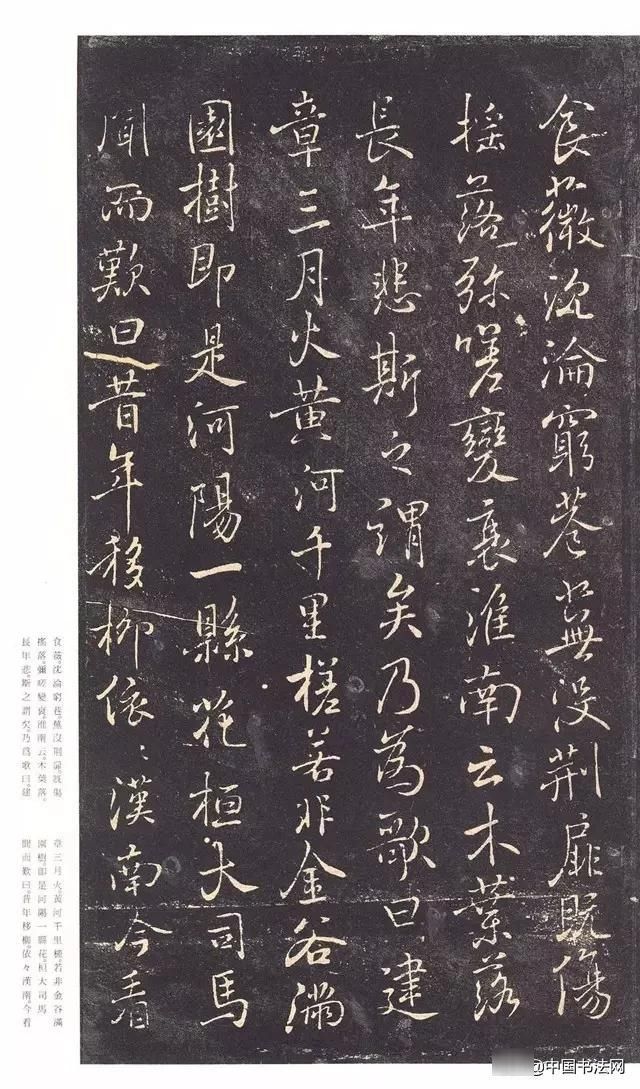 食薇沈淪窮巷蕪没荆扉既傷
摇落弥嗟變衰淮南云木葉落
長年悲斯之謂矣乃為歌曰建
章三月火黄河千里槎若非金谷滿
園樹即是河陽一縣花桓大司馬
聞而歎曰昔年移柳依〻漢南今看
食薇。沈淪窮巷。蕪沒荊扉。既傷
搖落。彌嗟變衰。淮南云。木葉落。
長年悲。斯之謂矣。乃爲歌曰。建
章三月火。黃河千里槎。若非金谷滿
園樹。即是河陽一縣花。桓大司馬
聞而歎曰。昔年移柳。依々漢南。今看
@中国书法网